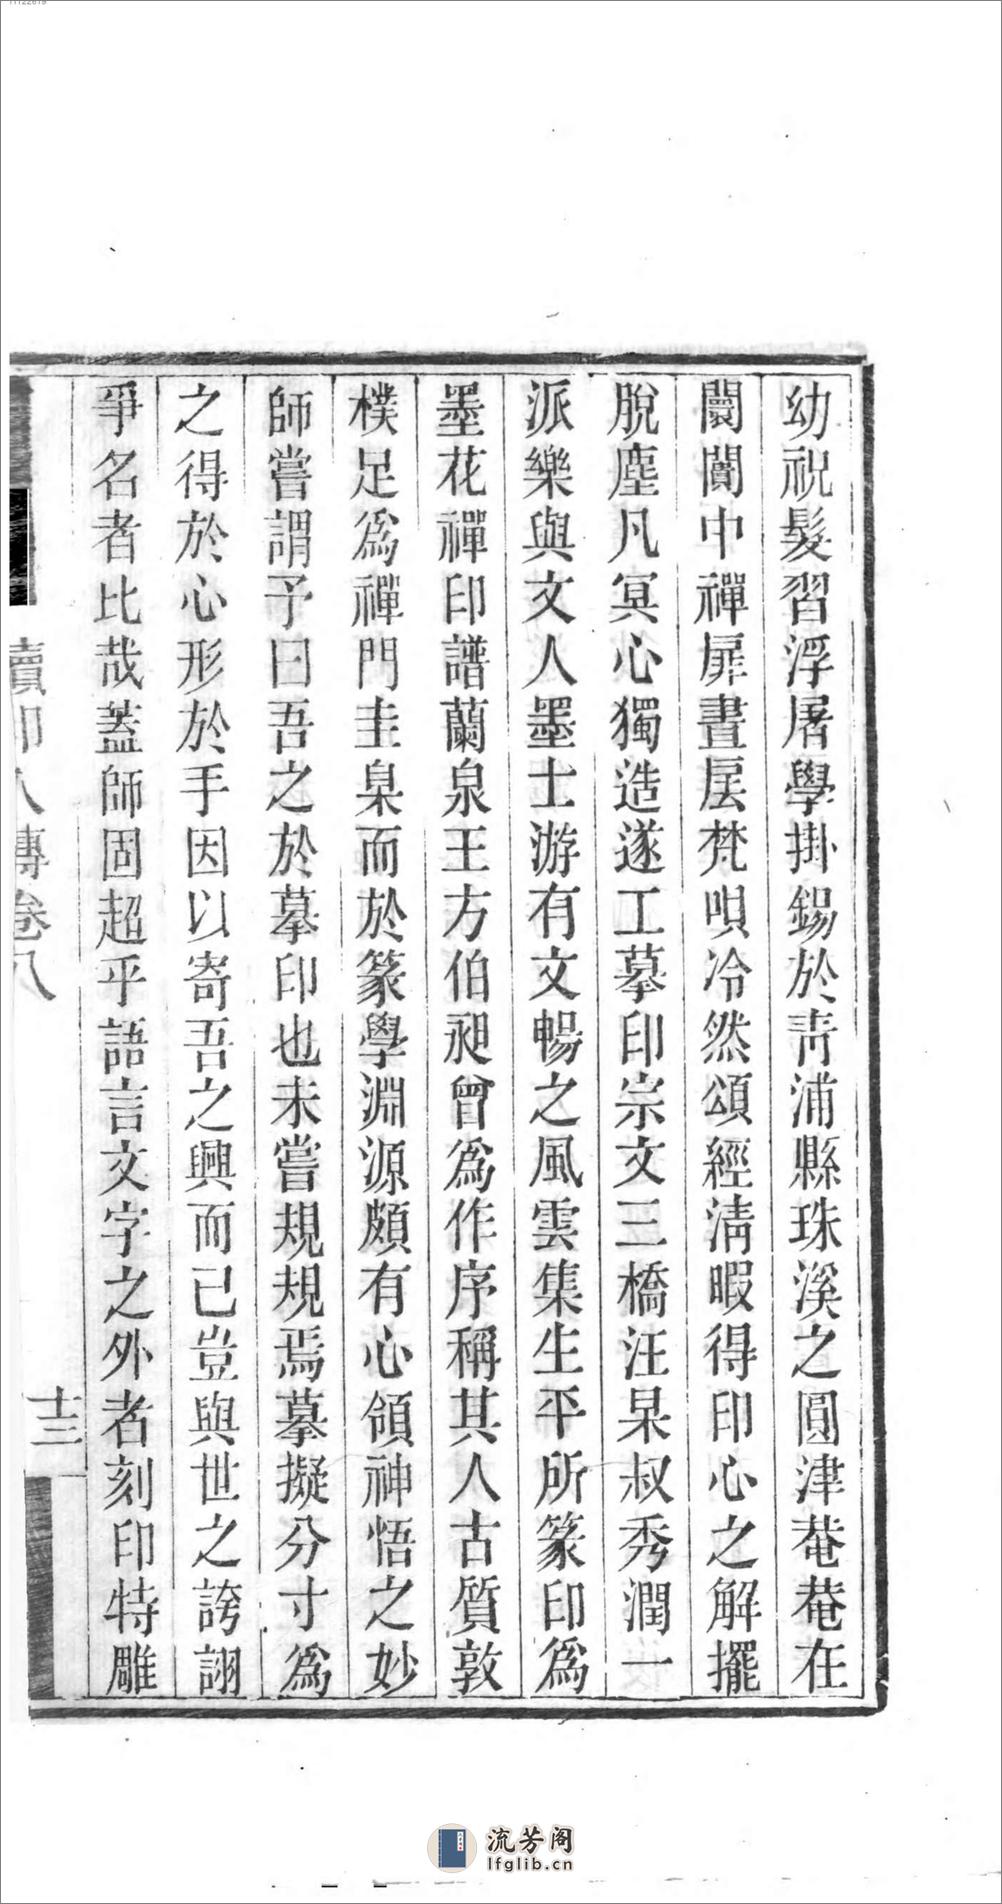 幼祝髮習浮屠學掛錫於靑浦縣珠溪之圓津菴菴在
闤闠中禪扉晝扂梵唄冷然頌經淸暇得印心之解擺
脫塵凡冥心獨造遂工摹印宗文三橋汪杲叔秀潤一
派樂與文人墨士游有文暢之風雲集生平所篆印爲
墨花禪印譜蘭泉王方伯昶曾爲作序稱其人古質敦
樸足爲禪門圭臬而於篆學淵源頗有心領神悟之妙
師嘗謂予曰吾之於摹印也未嘗規規焉摹擬分寸爲
之得於心形於手因以寄吾之興而已豈與世之誇詡
爭名者比哉蓋師固超乎語言文字之外者刻印特雕
續印人傳卷八
十三
流芳阁
lfglib.cn